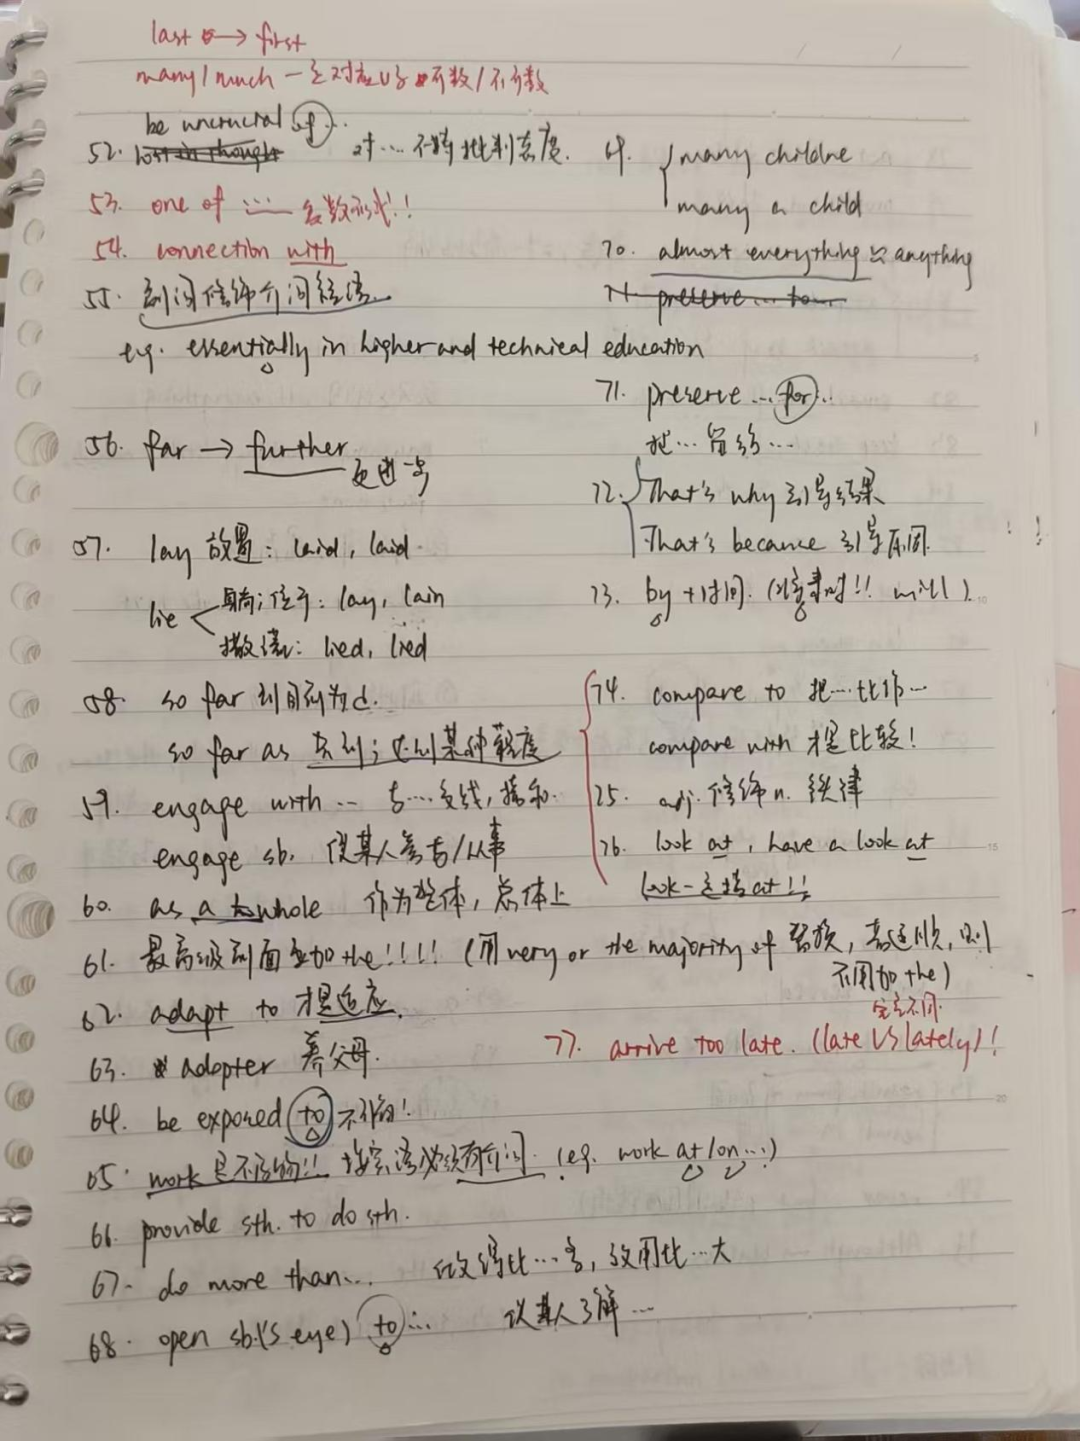 last ⟷ first
many/much 一定对应可数/不可数
be uncrucial of...
52. lost in thought 对...不持批判态度.
53. one of ...... 复数形式!!
54. connection with
55. 副词修饰介词短语.
eg. essentially in higher and technical education
56. far → further 更进一步
57. lay 放置: laid, laid.
lie 躺;位于: lay, lain
撒谎: lied, lied
58. so far 到目前为止.
so far as 达到;达到某种程度
59. engage with ... 与...
engage sb. 使某人参与/从事
60. as a whole 作为整体, 总体上
61. 最高级前面要加the!!!! (用very or the majority of 则
不用加the)
62. adapt to 才是适应.
63. adopter 养父母.
64. be exposed to 不
65. work 是不及物!! 接宾语必须有介词. (eg. work at/on...)
66. provide sth. to do sth.
67. do more than... 做得比...多, 效用比...大
68. open sb.('s eye) to... 使某人了解...
69. many childne
many a child
70. almost everything 不 anything
71. preserve ... to...
71. preserve ... for...
把...留给...
72. That's why 引导结果
That's because 引导原因.
73. by + 时间. (will).
74. compare to 把...比作...
compare with 才是比较!
75. adj. 修饰n. 铁律
76. look at, have a look at
look一定接at!!
完全不同.
77. arrive too late. (late VS lately)!